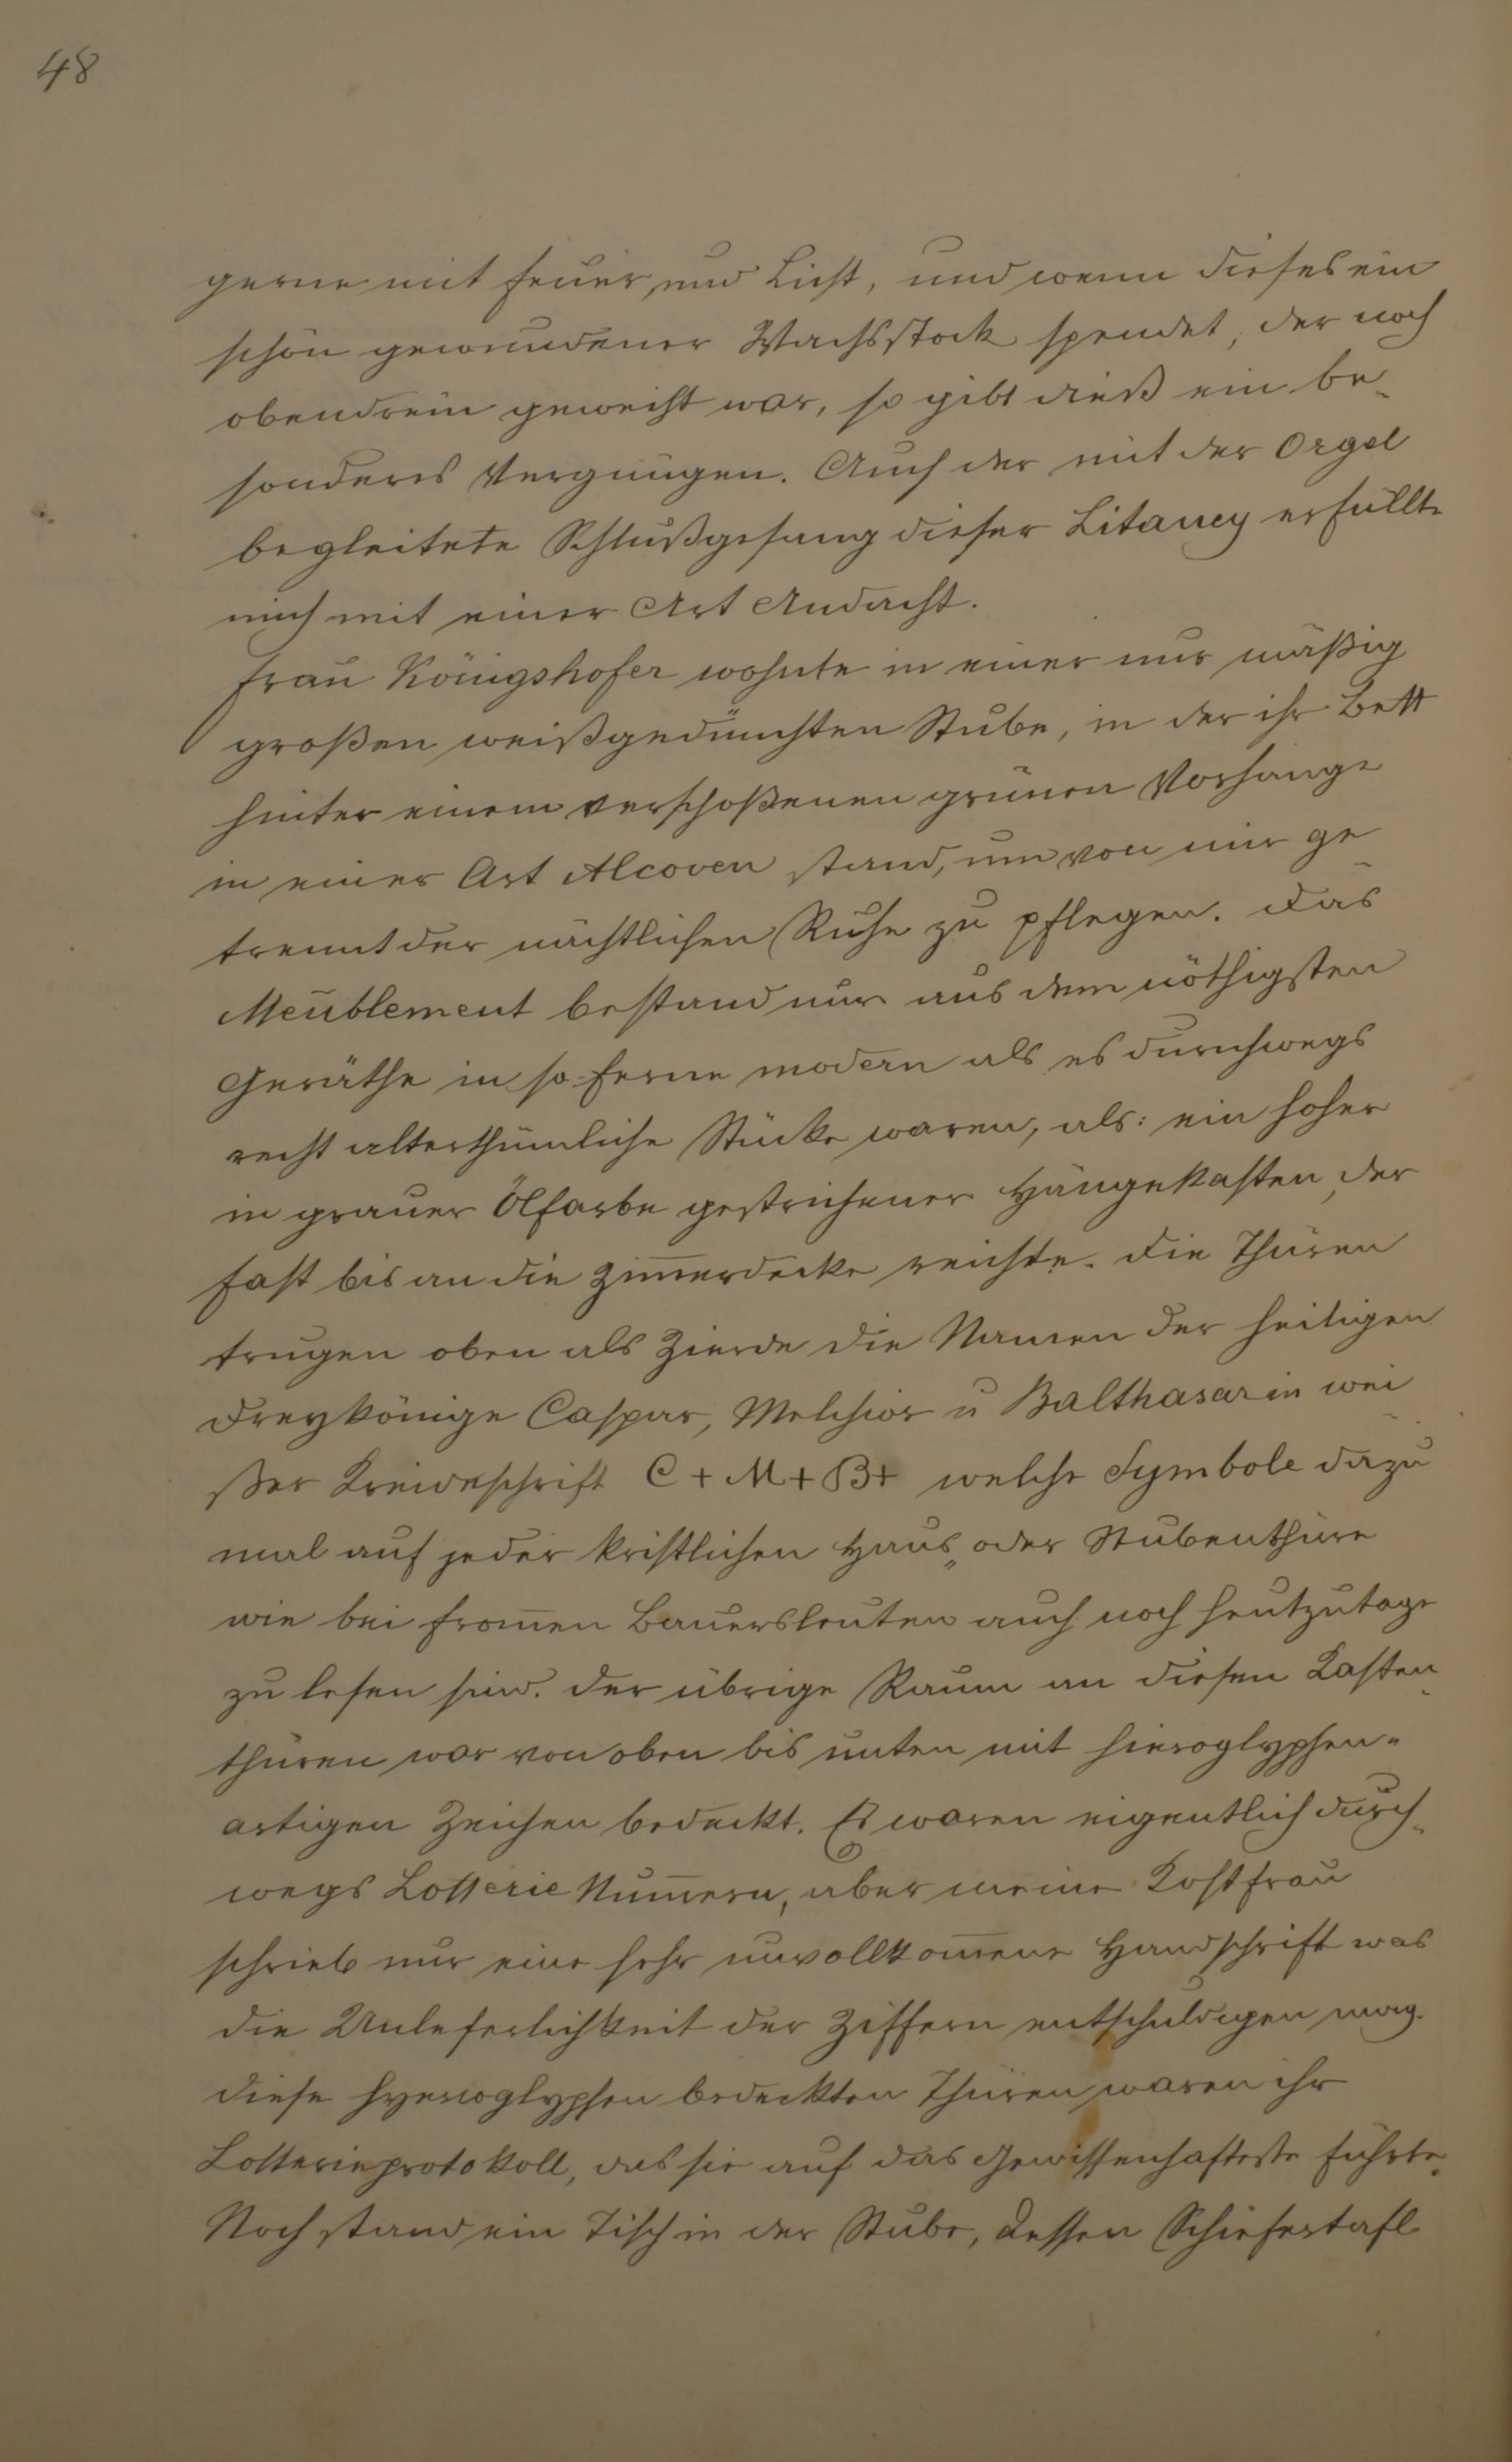 48
gerne mit Feuer, und Licht, und wenn dieses ein
schön gewundener Wachsstock spendet, der noch
obendrein geweiht war, so gibt dieß ein be-
sonderes Vergnügen. Auch der mit der Orgel
begleitete Schlußgesang dieser Litaney erfüllte
mich mit einer Art Andacht.
Frau Königshofer wohnte in einer nur mäßig
großen weißgedünchten Stube, in der ihr Bett
hinter einem verschoßenen grünen Vorhange
in einer Art Alcoven stand, um von mir ge-
trennt der nächtlichen Ruhe zu pflegen. Das
Meublement bestand nur aus dem nöthigsten
Geräthe in so ferne modern als es durchwegs
recht alterthümliche Stücke waren, als: ein hoher
in grauer Ölfarbe gestrichener Hängekasten, der
fast bis an die Zim̅erdecke reichte. Die Thüren
trugen oben als Zierde die Namen der heiligen
Dreykönige Caspar, Melchior u Balthasar in wei-
ßer Kreideschrift C+M+B+ welche Symbole dazu
mal auf jeder kristlichen Haus- oder Stubenthüre
wie bei from̅en Bauersleuten auch noch heutzutage
zu lesen sind. Der übrige Raum an diesen Kasten-
thüren war von oben bis unten mit hieroglyphen-
artigen Zeichen bedeckt. Es waren eigentlich durch-
wegs Lotterie Num̅ern, aber meine Kostfrau
schrieb nur eine sehr unvollkom̅ene Handschrift was
die Unleserlichkeit der Ziffern entschuldigen mag.
Diese hyeroglyphen bedeckten Thüren waren ihr
Lotterieprotokoll, das sie auf das Gewissenhafteste führte.
Noch stand ein Tisch in der Stube, dessen Schiefertafl